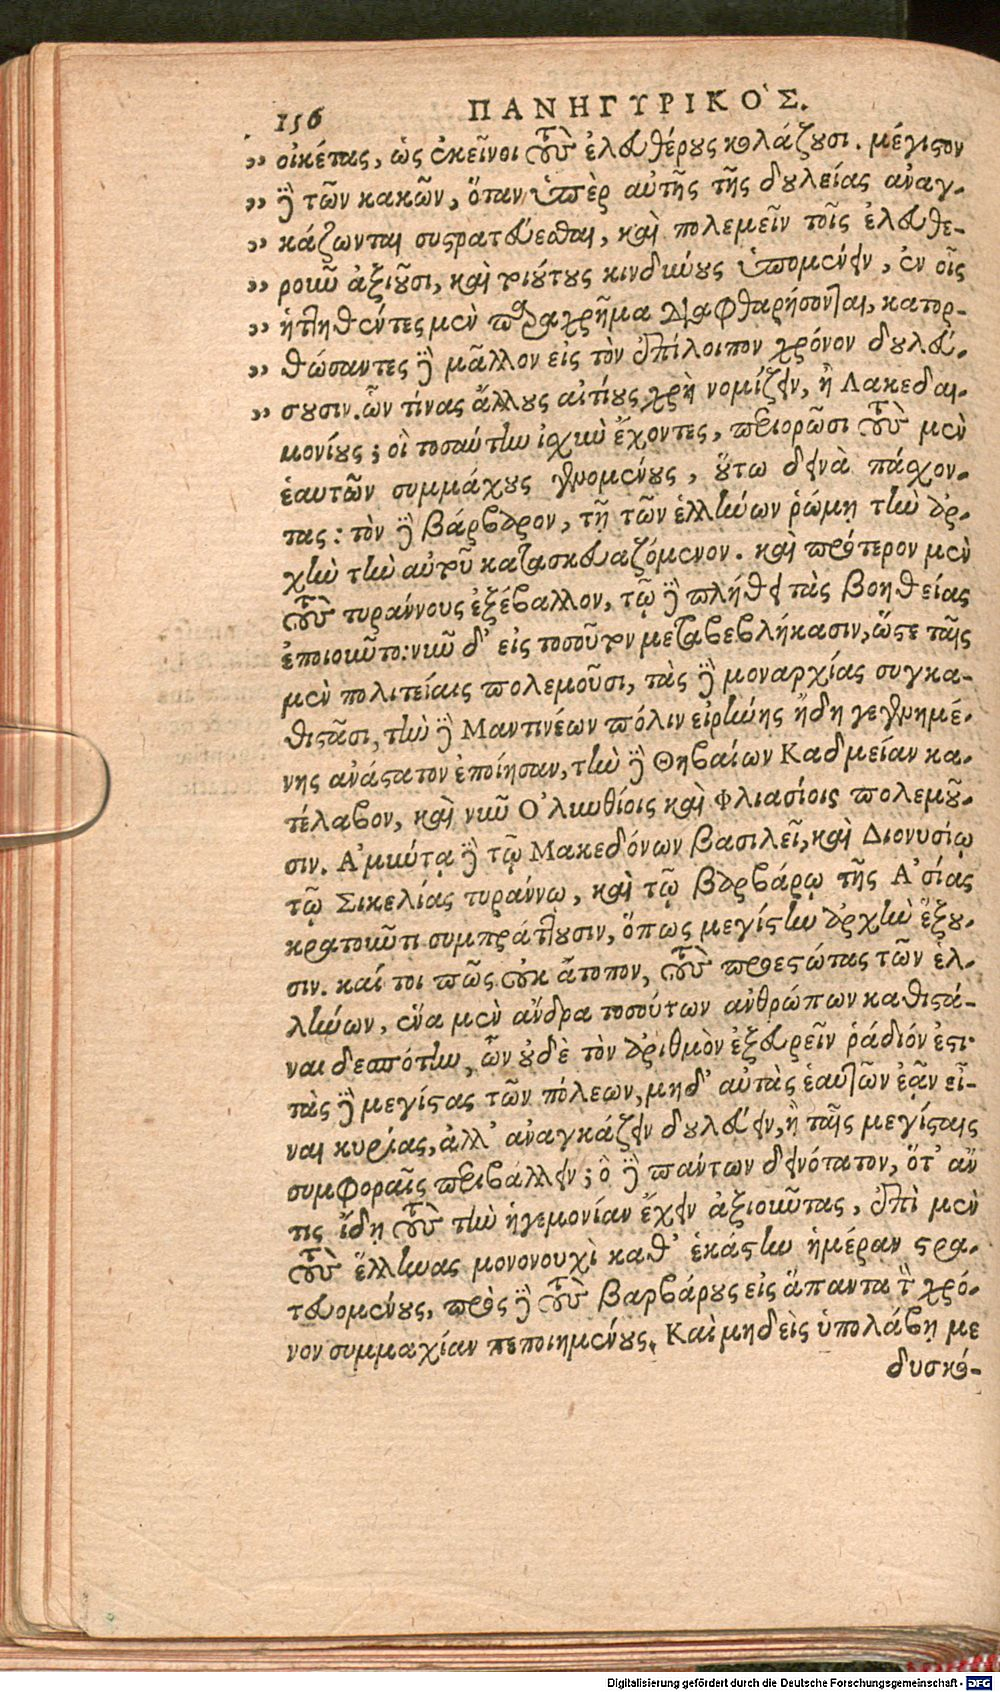 156 ΠΑΝΗΓΥΡΙΚΟ῾Σ.
,, οἰκέτας, ὡς ἐκεῖνοι τοὺς ἐλευθέρους κολάζουσι. μέγιστον
,, δὲ τῶν κακῶν, ὅταν ὑπὲρ αὐτῆς τῆς δουλείας ἀναγ-
,, κάζωνται συστρατεύεσθαι, καὶ πολεμεῖν τοῖς ἐλευθε-
,, ροῦν ἀξιοῦσι, καὶ τοιούτους κινδύνους ὑπομένειν, ἐν οἷς
,, ἡττηθέντες μὲν παραχρῆμα διαφθαρήσονται, κατορ-
,, θώσαντες δὲ μᾶλλον εἰς τὸν ἐπίλοιπον χρόνον δουλεύ-
,, σουσιν. ὧν τίνας ἄλλους αἰτίους χρὴ νομίζειν, ἢ Λακεδαι-
μονίους; οἳ τοσαύτην ἰσχὺν ἔχοντες, περιορῶσι τοὺς μὲν
ἑαυτῶν συμμάχους γενομένους, οὕτω δεινὰ πάσχον-
τας: τὸν δὲ βάρβαρον, τῇ τῶν ἑλλήνων ῥώμῃ τὴν ἀρ-
χὴν τὴν αὑτοῦ κατασκευαζόμενον. καὶ πρότερον μὲν
τοὺς τυράννους ἐξέβαλλον, τῷ δὲ πλήθει τὰς βοηθείας
ἐποιοῦντο: νῦν δ' εἰς τοσοῦτον μεταβεβλήκασιν, ὥστε ταῖς
μὲν πολιτείαις πολεμοῦσι, τὰς δὲ μοναρχίας συγκα-
θιστᾶσι, τὴν δὲ Μαντινέων πόλιν εἰρήνης ἤδη γεγενημέ-
νης ἀνάστατον ἐποίησαν, τὴν δὲ Θηβαίων Καδμείαν κα-
τέλαβον, καὶ νῦν Ὀλυνθίοις καὶ Φλιασίοις πολεμοῦ-
σιν. Ἀμύντᾳ δὲ τῷ Μακεδόνων βασιλεῖ, καὶ Διονυσίῳ
τῷ Σικελίας τυράννῳ, καὶ τῷ βαρβάρῳ τῆς Ἀσίας
κρατοῦντι συμπράττουσιν, ὅπως μεγίστην ἀρχὴν ἕξου-
σιν. καί τοι πῶς οὐκ ἄτοπον, τοὺς προεστώτας τῶν ἑλ-
λήνων, ἕνα μὲν ἄνδρα τοσούτων ἀνθρώπων καθιστά-
ναι δεσπότην, ὧν οὐδὲ τὸν ἀριθμὸν ἐξευρεῖν ῥάδιόν ἐστι·
τὰς δὲ μεγίστας τῶν πόλεων, μηδ' αὐτὰς ἑαυτῶν ἐᾷν εἶ-
ναι κυρίας, ἀλλ' ἀναγκάζειν δουλεύειν, ἢ ταῖς μεγίσταις
συμφοραῖς περιβάλλειν; ὃ δὲ πάντων δεινότατον, ὅτ' ἄν
τις ἴδῃ τοὺς τὴν ἡγεμονίαν ἔχειν ἀξιοῦντας, ἐπὶ μὲν
τοὺς ἕλληνας μονονουχὶ καθ' ἑκάστην ἡμέραν στρα-
τευομένους, πρὸς δὲ τοὺς βαρβάρους εἰς ἅπαντα τὸν χρό-
νον συμμαχίαν πεποιημένους. Καὶ μηδεὶς ὑπολάβῃ με
δυσκό-
Digitalisierung gefördert durch die Deutsche Forschungsgemeinschaft - DFG